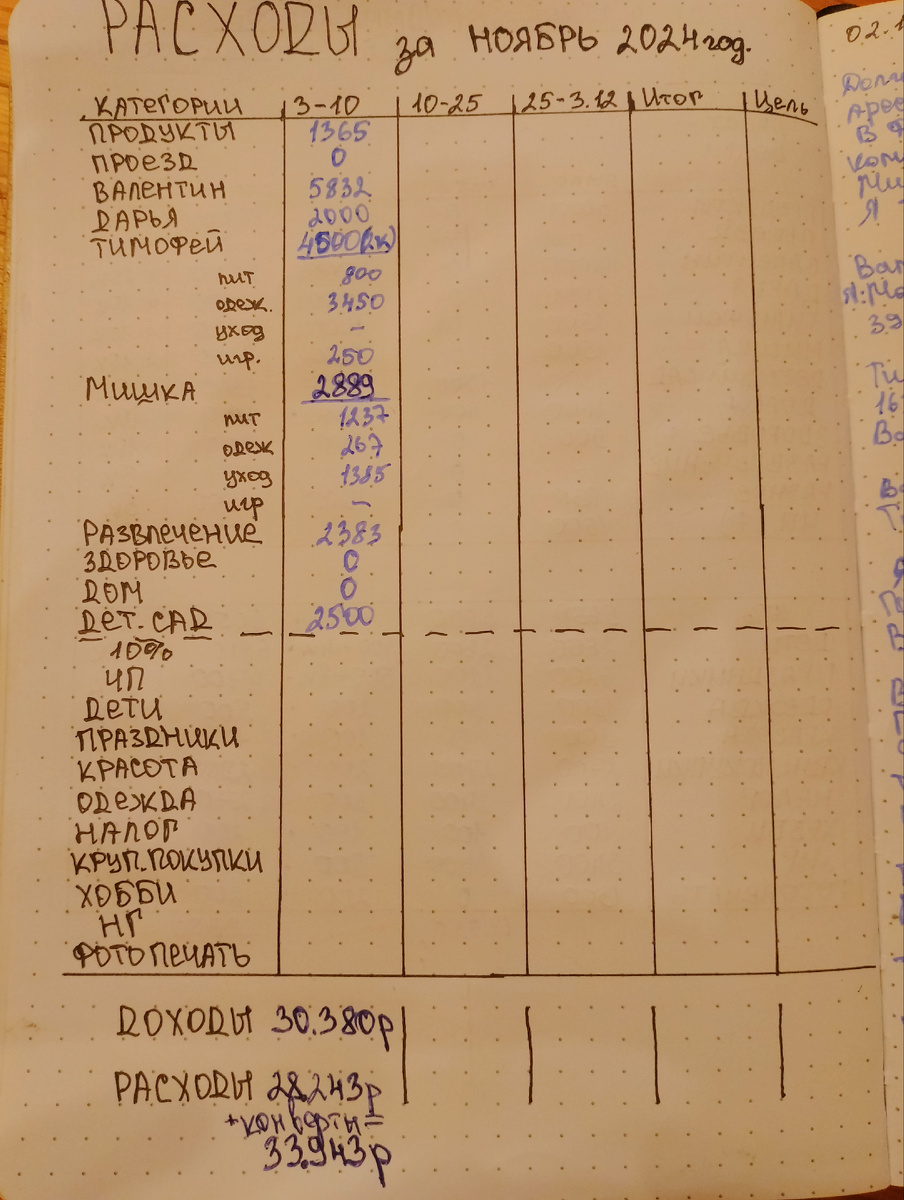 РАСХОДЫ за НОЯБРЬ 2024 год.
КАТЕГОРИИ 3-10 10-25 25-3.12 Итог Цель
ПРОДУКТЫ 1365
ПРОЕЗД 0
ВАЛЕНТИН 5832
ДАРЬЯ 2000
ТИМОФЕЙ 4500
пит 800
одеж. 3450
уход –
игр. 250
МИШКА 2889
пит 1237
одеж 267
уход 1385
игр –
РАЗВЛЕЧЕНИЕ 2383
ЗДОРОВЬЕ 0
ДОМ 0
ДЕТ. САД 2500
10%
ЧП
ДЕТИ
ПРАЗДНИКИ
КРАСОТА
ОДЕЖДА
НАЛОГ
КРУП. ПОКУПКИ
ХОББИ
НГ
ФОТОПЕЧАТЬ
ДОХОДЫ 30.380р
РАСХОДЫ 28.243р
+конверты=
33.943р